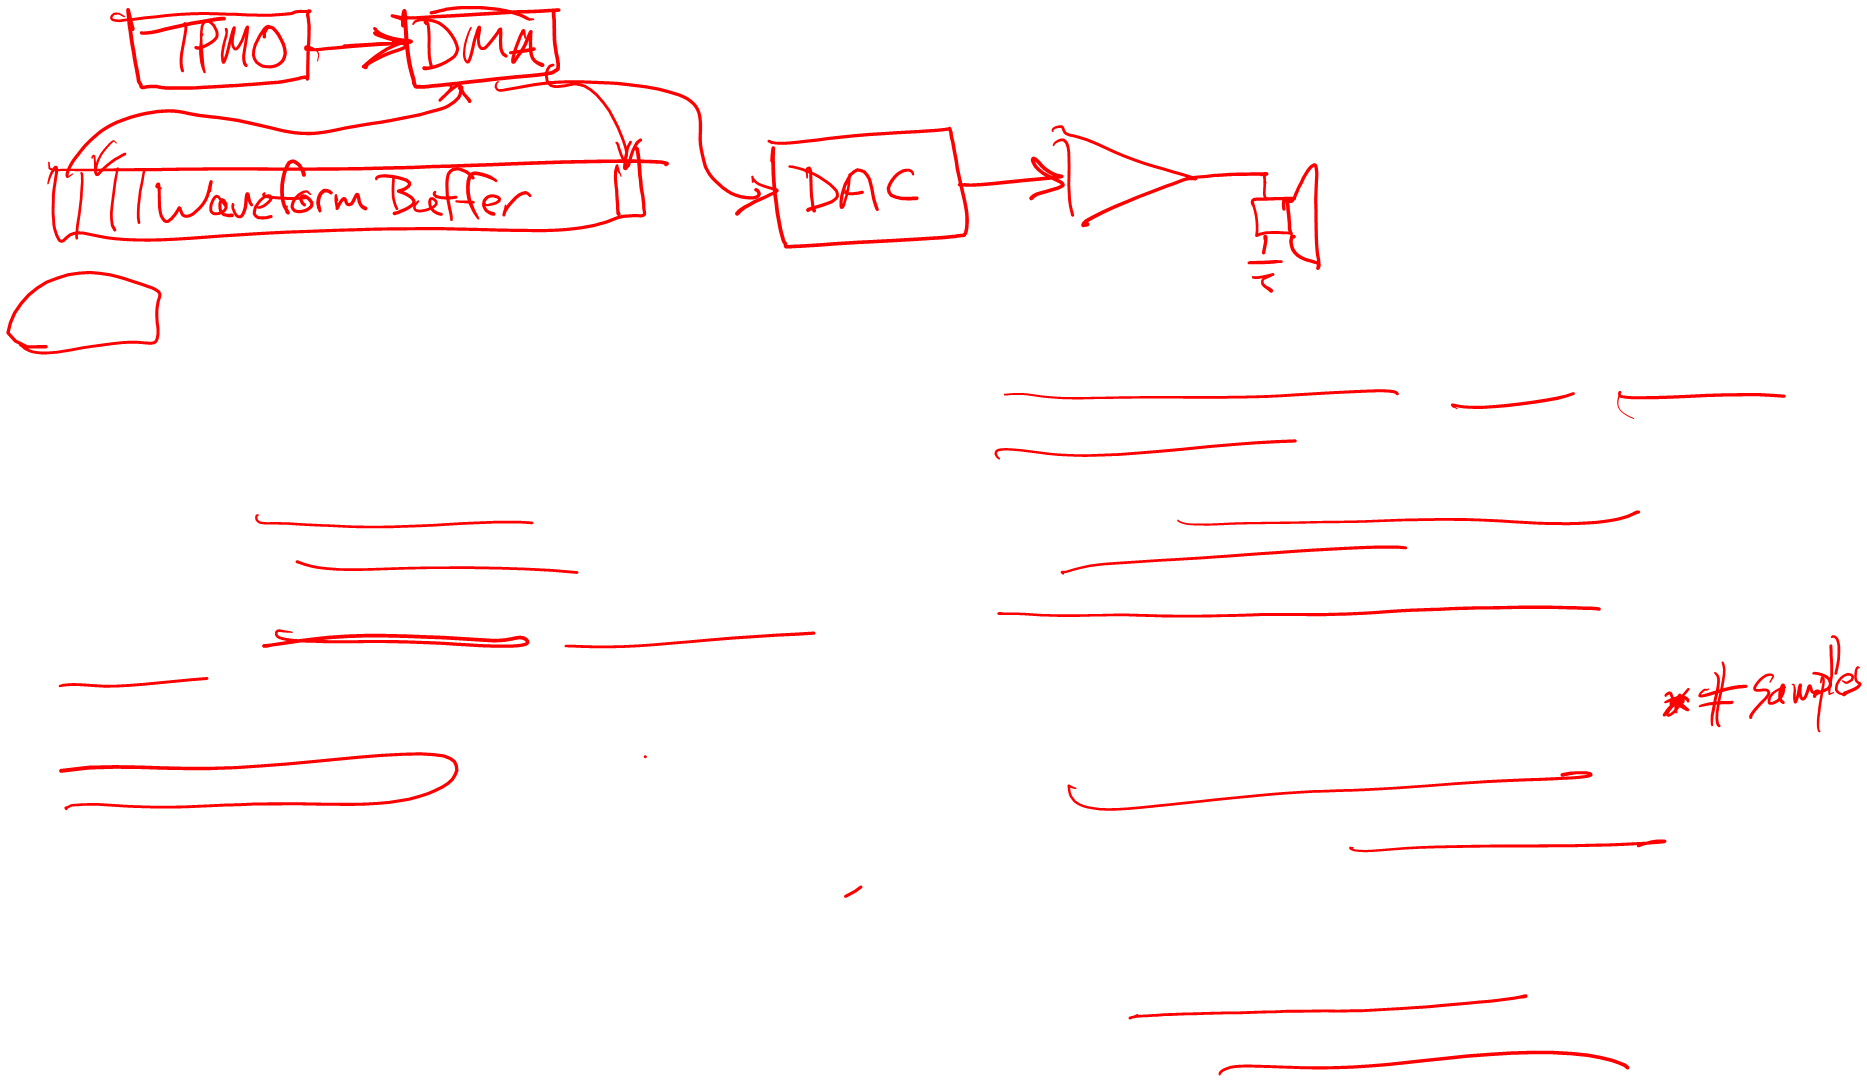 TPM0
DMA
Waveform Buffer
DAC
* # Samples